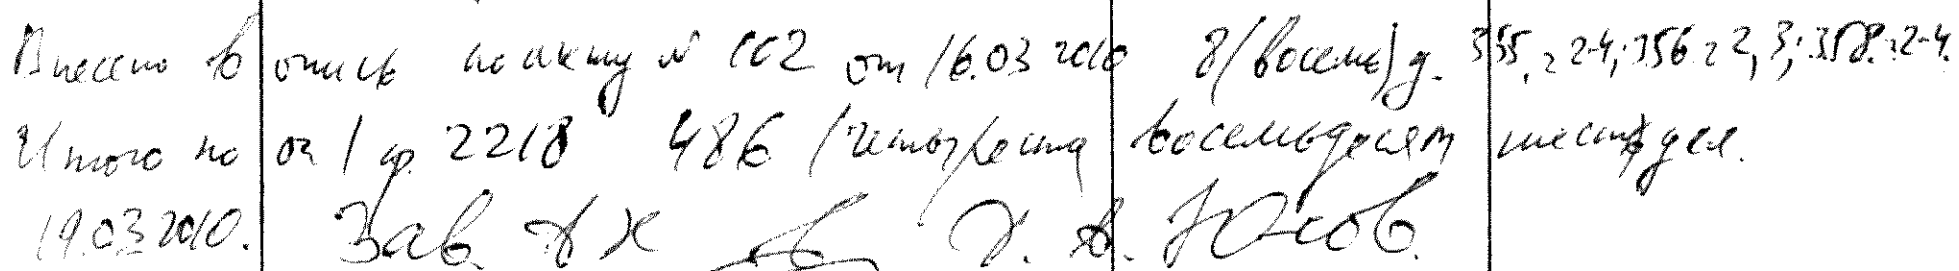 Внесено в опись по акту № 102 от 16.03.2010 8 (восемь) д. 355.2 2-4; 356.2 2, 3; 358.2 2-4.
Итого по оп 1 ф. 2218 486 (четыреста восемьдесят шесть) дел.
19.03.2010. Зав. АХ